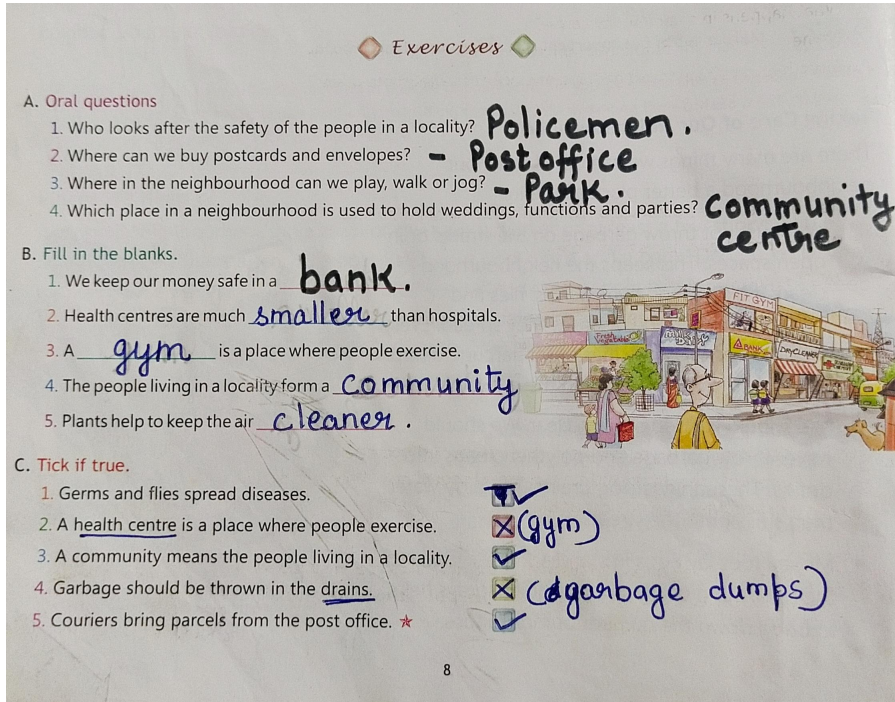 Exercises
A. Oral questions
1. Who looks after the safety of the people in a locality? Policemen.
2. Where can we buy postcards and envelopes? - Post office
3. Where in the neighbourhood can we play, walk or jog? - Park.
4. Which place in a neighbourhood is used to hold weddings, functions and parties? Community
centre
B. Fill in the blanks.
1. We keep our money safe in a bank.
2. Health centres are much smaller than hospitals.
3. A gym is a place where people exercise.
4. The people living in a locality form a community
5. Plants help to keep the air cleaner.
FIT GYM
Fresh Vegetables
BANK
DRYCLEANER
C. Tick if true.
1. Germs and flies spread diseases. ✓
2. A health centre is a place where people exercise. X (gym)
3. A community means the people living in a locality. ✓
4. Garbage should be thrown in the drains. X (garbage dumps)
5. Couriers bring parcels from the post office. ★ ✓
8